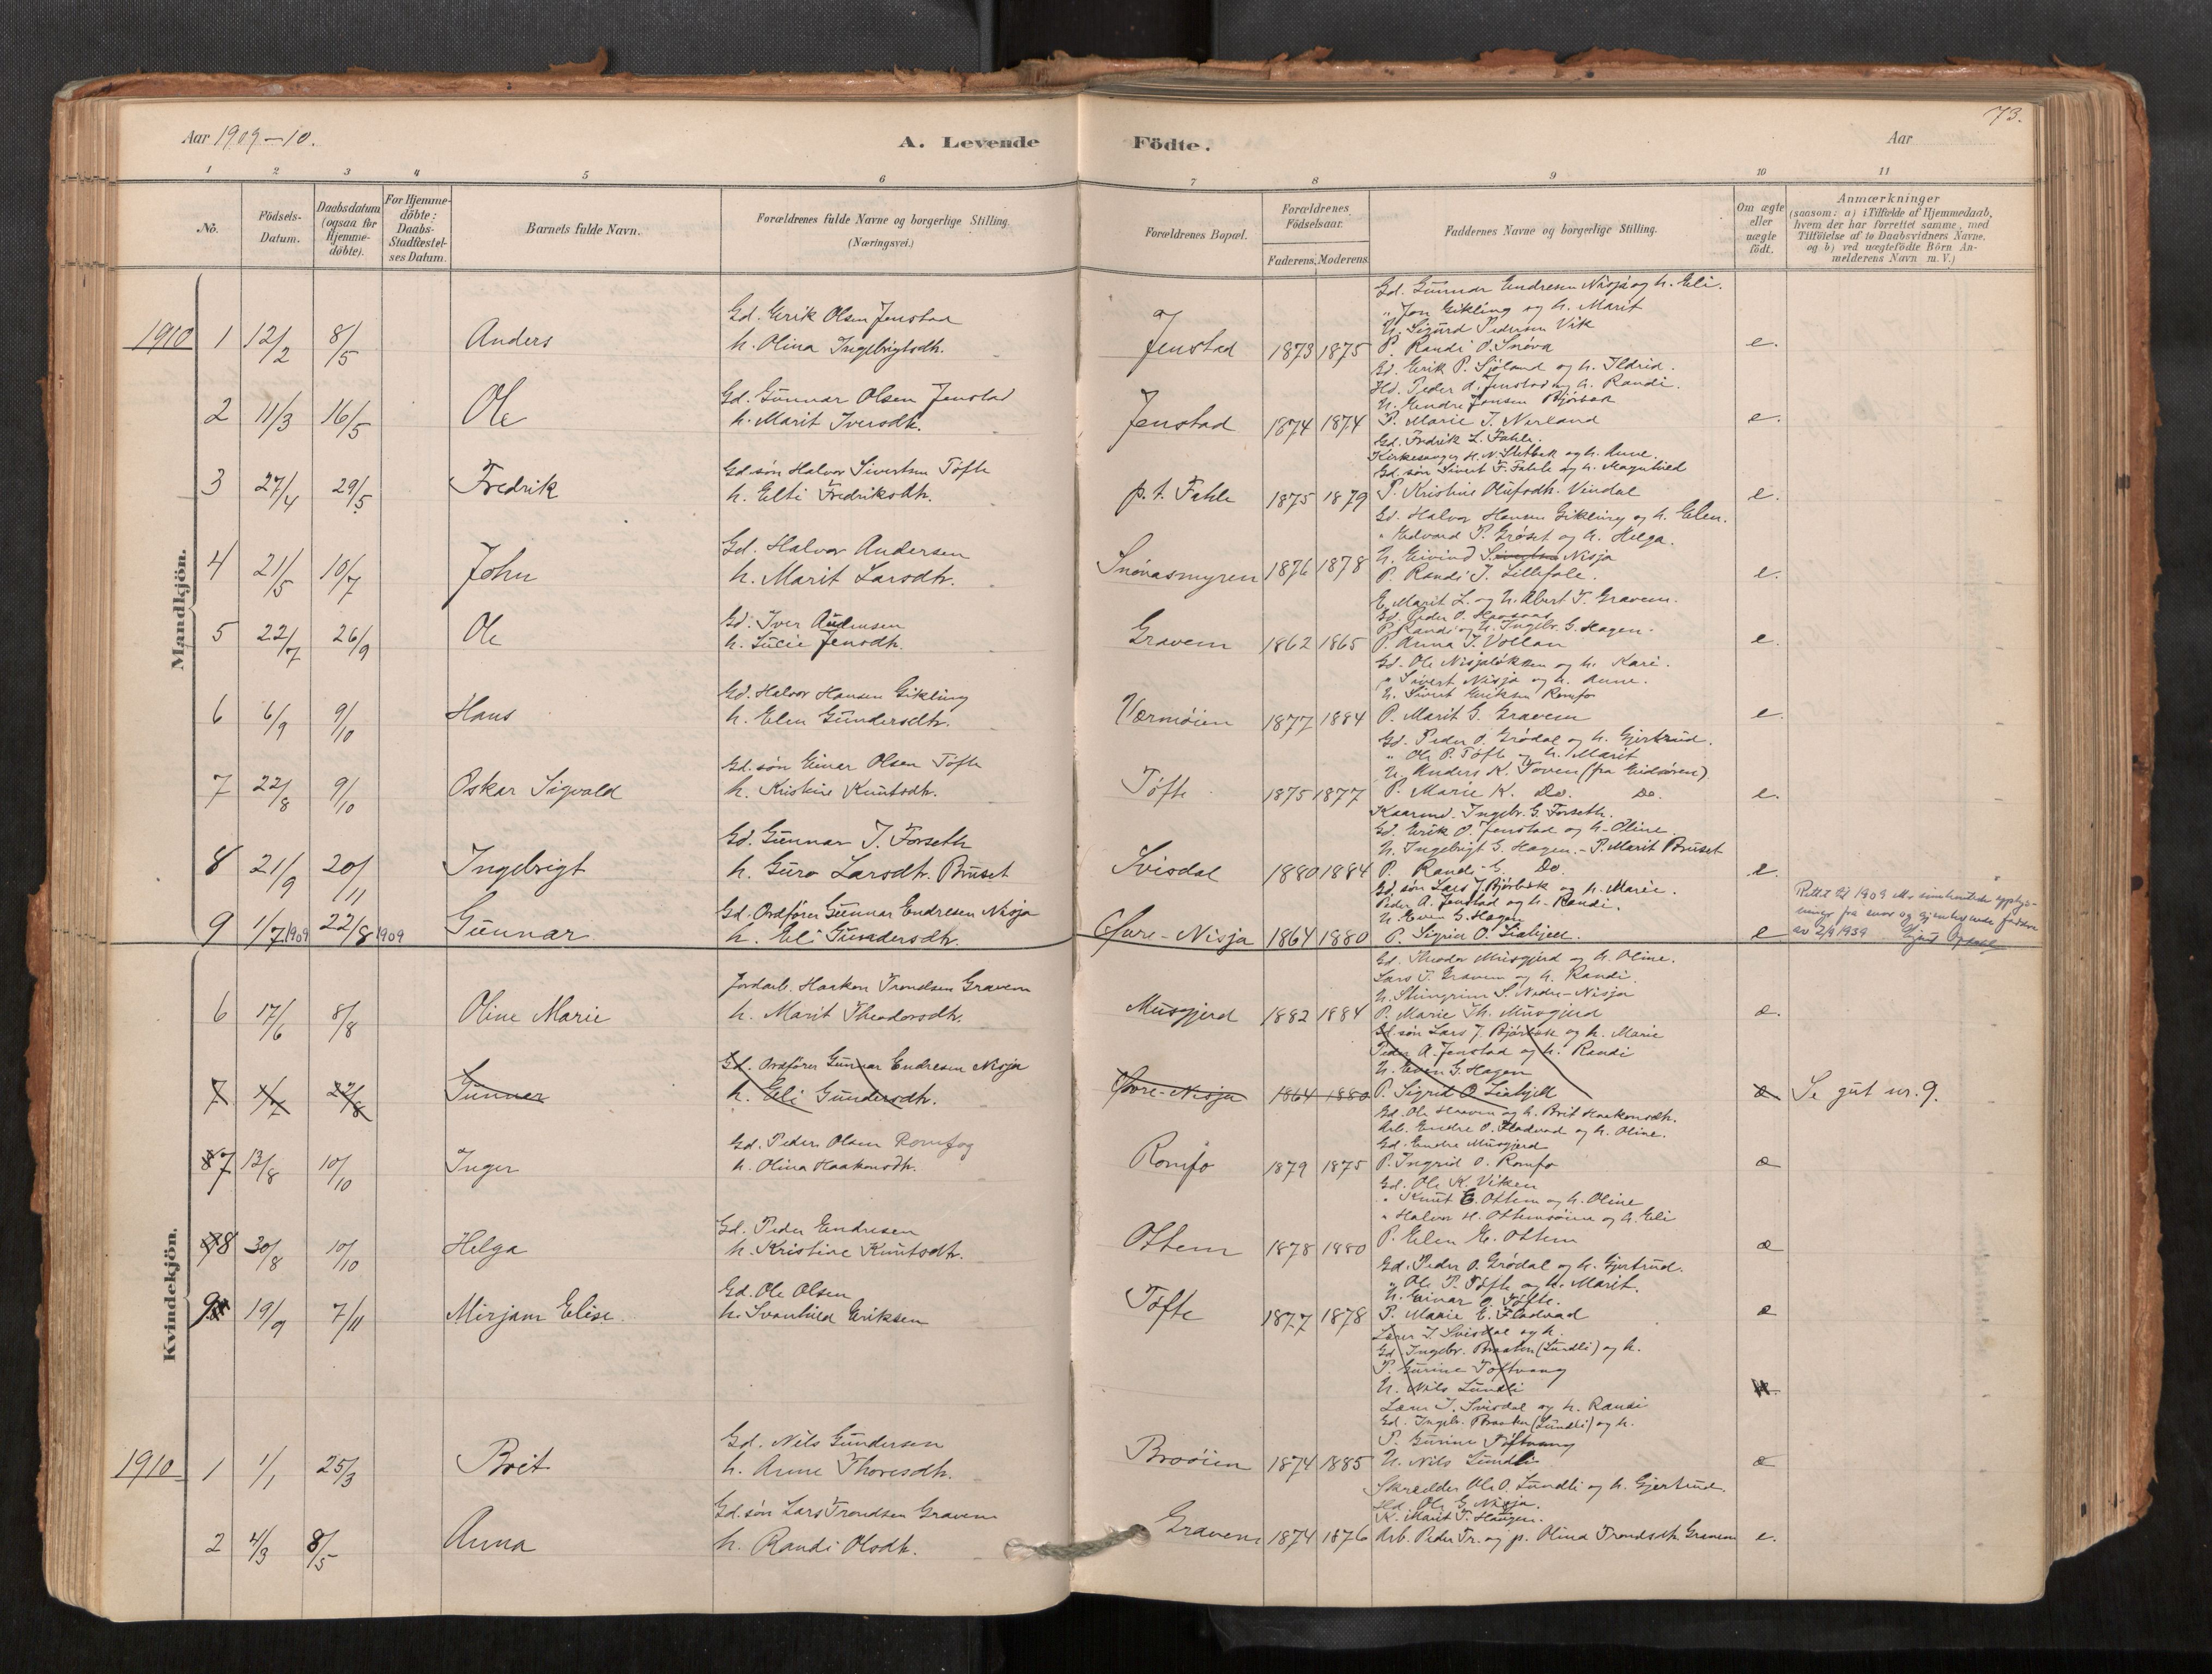 Aar 1909-10.
A. Levende
Födte.
Aar
73.
1 2 3 4 5 6 7 8 9 10 11
No.
Födsels-Datum.
Daabsdatum (ogsaa for Hjemme-döbte).
For Hjemme-döbte: Daabs-Stadfæstel-ses Datum.
Barnets fulde Navn.
Forældrenes fulde Navne og borgerlige Stilling.
(Næringsvei.)
Forældrenes Bopæl.
Forældrenes Födselsaar.
Faderens. Moderens.
Faddernes Navne og borgerlige Stilling.
Om ægte eller uægte födt.
Anmærkninger
(saasom: a) i Tilfælde af Hjemmedaab,
hvem der har forrettet samme, med
Tilföielse af to Daabsvidners Navne,
og b) ved uægtefödte Börn An-
melderens Navn m. V.)
Mandkjön.
1910 1 12/2 8/5 Anders
Gd. Erik Olsen Jenstad
h. Olina Ingebrigtsdtr.
Jenstad 1873 1875
Gd. Gunnar Endresen Nisja og h. Eli.
" Jon Gikling og h. Marit
U. Sigurd Pedersen Vik
P. Randi O. Snøva
e.
2 11/3 16/5 Ole
Gd. Gunnar Olsen Jenstad
h. Marit Iversdtr.
Jenstad 1874 1874
Gd. Erik P. Sjøland og h. Ildrid.
Hd. Peder A. Jenstad og h. Randi.
U. Endre Jensen Bjørbæk
P. Marie J. Nerland
e.
3 27/4 29/5 Fredrik
Gd. søn Halvor Sivertsen Tofte
h. Elti Fredriksdtr.
p.t. Fahle 1875 1879
Gd. Fredrik L. Fahle.
Kirkesanger H. N. Slitbak og h. Anne.
Gd. søn Sivert F. Fahle og h. Magnhild
P. Kristine Olufsdtr. Vindal
e.
4 21/5 10/7 John
Gd. Halvor Andersen
h. Marit Larsdtr.
Snøvasmyren 1876 1878
Gd. Halvor Hansen Gikling og h. Elen.
" Edvard P. Grøset og h. Helga.
U. Eivind Sivertsen Nisja
P. Randi J. Lillefale.
e.
5 22/7 26/9 Ole
Gd. Iver Audensen
h. Lucie Jensdtr.
Gravem 1862 1865
E. Marit L. og U. Albert T. Gravem.
Gd. Peder O.
P. Randi og U. Ingebr. G. Hagen.
P. Anna J. Vollan
e.
6 6/9 9/10 Hans
Gd. Halvor Hansen Gikling
h. Elen Gundersdtr.
Værmøien 1877 1884
Gd. Ole Nisjaløkken og h. Kari.
" Sivert Nisja og h. Anne.
U. Sivert Eriksen Romfo
P. Marit G. Gravem
e
7 22/8 9/10 Oskar Sigvald
Gd. søn Einar Olsen Tofte
h. Kristine Knutsdtr.
Tofte 1875 1877
Gd. Peder O. Grødal og h. Gjertrud.
" Ole P. Tofte og h. Marit
U. Anders K. Toven (fra Eidsøren)
P. Marie K. Do. Do.
e.
8 21/9 20/11 Ingebrigt
Gd. Gunnar I. Forseth
h. Guro Larsdtr. Bruset
Svisdal 1880 1884
Kaarmd. Ingebr. G. Forseth.
Gd. Erik O. Jenstad og h. Oline.
U. Ingebrigt G. Hagen. - P. Marit Bruset
P. Randi G. Do.
e.
9 1/7 1909 22/8 1909 Gunnar
Gd. Ordfører Gunnar Endresen Nisja
h. Eli Gundersdtr.
Øvre-Nisja 1864 1880
Gd. søn Lars J. Bjørbæk og h. Marie.
Peder A. Jenstad og h. Randi.
U. Even G. Hagen
P. Sigrid O. Liahjell.
e
Rettet til 1909 efter opplys-
ninger fra mor og
av 2/9 1939
Kvindekjön.
6 17/6 8/8 Oline Marie
Jordarb. Haakon Trondsen Gravem
h. Marit Theodorsdtr.
Musgjerd 1882 1884
Gd. Theodor Musgjerd og h. Oline.
Lars T. Gravem og h. Randi.
U. Steingrim S. Nedre-Nisja
P. Marie Th. Musgjerd
æ.
7 1/7 22/8 Gunnar
Gd. Ordfører Gunnar Endresen Nisja
h. Eli Gundersdtr.
Øvre-Nisja 1864 1880
Gd. søn Lars J. Bjørbæk og h. Marie
Peder A. Jenstad og h. Randi
U. Even G. Hagen
P. Sigrid O Liahjell
æ
Se gut nr. 9.
8 7 13/8 10/10 Inger
Gd. Peder Olsen Romfog
h. Olina Haakonsdtr.
Romfo 1879 1875
Gd. Ole Haaven og h. Brit Haakonsdtr.
Arb. Endre O. Fladvad og h. Oline.
Gd. Endre Musgjerd
P. Ingrid O. Romfo
æ
9 8 30/8 10/10 Helga
Gd. Peder Endresen
h. Kristine Knutsdtr.
Ottem 1878 1880
Gd. Ole K. Viken
" Knut E. Ottem og h. Oline
" Halvor H. Ottemsøien og h. Eli
P. Elen E. Ottem
æ
9 19/9 7/11 Mirjam Elise
Gd. Ole Olsen
h. Svanhild Eriksen
Tofte 1877 1878
Gd. Peder O. Grødal og h. Gjertrud.
" Ole P. Tofte og h. Marit.
U. Einar O. Tofte.
P. Marie E. Fladvad
æ
Lærer I. Svisdal og h.
Gd. Ingebr. Braaten (Lundli) og h.
P. Gurine Toftvang
U. Nils Lundli
1910 1 1/1 25/3 Brit
Gd. Nils Gundersen
h. Anne Thoresdtr.
Broøien 1874 1885
Lærer I. Svisdal og h. Randi
Gd. Ingebr. Braaten (Lundli) og h.
P. Gurine Toftvang
U. Nils Lundli
æ
2 4/3 8/5 Anna
Gd. søn Lars Trondsen Gravem
h. Randi Olsdtr.
Gravem 1874 1876
Skrædder Ole O. Lundli og h. Gjertrud.
Hd. Ole G. Nisja.
K. Marit T. Haugen.
Arb. Peder Tr. og p. Olina Trondsdtr. Gravem
e.